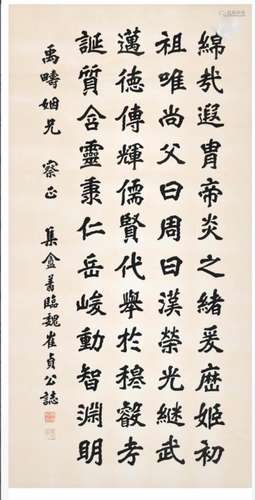 綿哉遐冑帝炎之緒爰歷姬初
祖唯尚父曰周曰漢榮光繼武
邁德傳輝儒賢代舉於穆叡考
誕質含靈秉仁岳峻動智淵明
禹疇姻兄 察正 集盦臨魏崔貞公誌